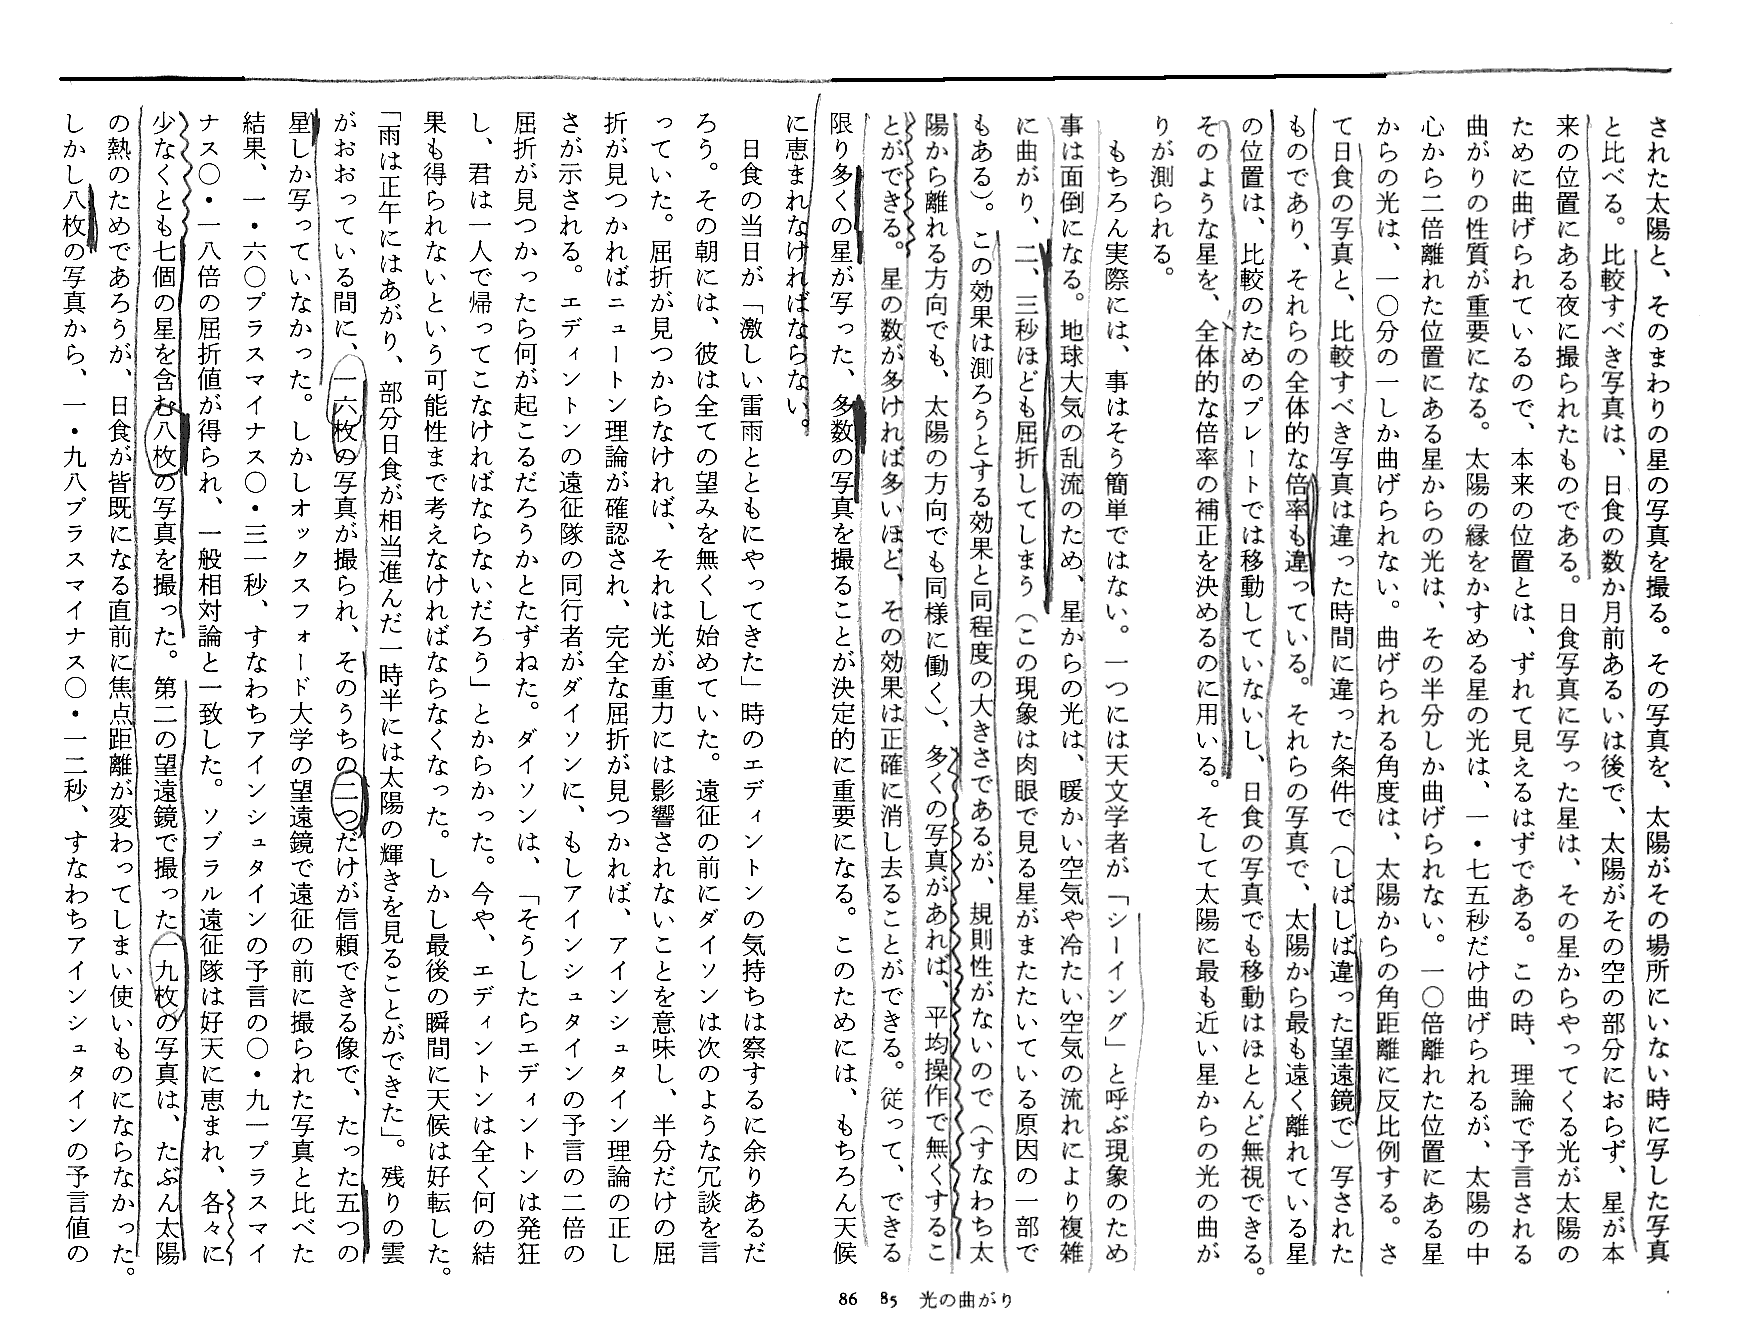 された太陽と、そのまわりの星の写真を撮る。その写真を、太陽がその場所にいない時に写した写真
と比べる。比較すべき写真は、日食の数か月前あるいは後で、太陽がその空の部分におらず、星が本
来の位置にある夜に撮られたものである。日食写真に写った星は、その星からやってくる光が太陽の
ために曲げられているので、本来の位置とは、ずれて見えるはずである。この時、理論で予言される
曲がりの性質が重要になる。太陽の縁をかすめる星の光は、一・七五秒だけ曲げられるが、太陽の中
心から二倍離れた位置にある星からの光は、その半分しか曲げられない。一〇倍離れた位置にある星
からの光は、一〇分の一しか曲げられない。曲げられる角度は、太陽からの角距離に反比例する。さ
て日食の写真と、比較すべき写真は違った時間に違った条件で（しばしば違った望遠鏡で）写された
ものであり、それらの全体的な倍率も違っている。それらの写真で、太陽から最も遠く離れている星
の位置は、比較のためのプレートでは移動していないし、日食の写真でも移動はほとんど無視できる。
そのような星を、全体的な倍率の補正を決めるのに用いる。そして太陽に最も近い星からの光の曲が
りが測られる。
もちろん実際には、事はそう簡単ではない。一つには天文学者が「シーイング」と呼ぶ現象のため
事は面倒になる。地球大気の乱流のため、星からの光は、暖かい空気や冷たい空気の流れにより複雑
に曲がり、二、三秒ほども屈折してしまう（この現象は肉眼で見る星がまたたいている原因の一部で
もある）。この効果は測ろうとする効果と同程度の大きさであるが、規則性がないので（すなわち太
陽から離れる方向でも、太陽の方向でも同様に働く）、多くの写真があれば、平均操作で無くするこ
とができる。星の数が多ければ多いほど、その効果は正確に消し去ることができる。従って、できる
限り多くの星が写った、多数の写真を撮ることが決定的に重要になる。このためには、もちろん天候
に恵まれなければならない。
日食の当日が「激しい雷雨とともにやってきた」時のエディントンの気持ちは察するに余りあるだ
ろう。その朝には、彼は全ての望みを無くし始めていた。遠征の前にダイソンは次のような冗談を言
っていた。屈折が見つからなければ、それは光が重力には影響されないことを意味し、半分だけの屈
折が見つかればニュートン理論が確認され、完全な屈折が見つかれば、アインシュタイン理論の正し
さが示される。エディントンの遠征隊の同行者がダイソンに、もしアインシュタインの予言の二倍の
屈折が見つかったら何が起こるだろうかとたずねた。ダイソンは、「そうしたらエディントンは発狂
し、君は一人で帰ってこなければならないだろう」とからかった。今や、エディントンは全く何の結
果も得られないという可能性まで考えなければならなくなった。しかし最後の瞬間に天候は好転した。
「雨は正午にはあがり、部分日食が相当進んだ一時半には太陽の輝きを見ることができた」。残りの雲
がおおっている間に、一六枚の写真が撮られ、そのうちの二つだけが信頼できる像で、たった五つの
星しか写っていなかった。しかしオックスフォード大学の望遠鏡で遠征の前に撮られた写真と比べた
結果、一・六〇プラスマイナス〇・三一秒、すなわちアインシュタインの予言の〇・九一プラスマイ
ナス〇・一八倍の屈折値が得られ、一般相対論と一致した。ソブラル遠征隊は好天に恵まれ、各々に
少なくとも七個の星を含む八枚の写真を撮った。第二の望遠鏡で撮った一九枚の写真は、たぶん太陽
の熱のためであろうが、日食が皆既になる直前に焦点距離が変わってしまい使いものにならなかった。
しかし八枚の写真から、一・九八プラスマイナス〇・一二秒、すなわちアインシュタインの予言値の
86 85 光の曲がり